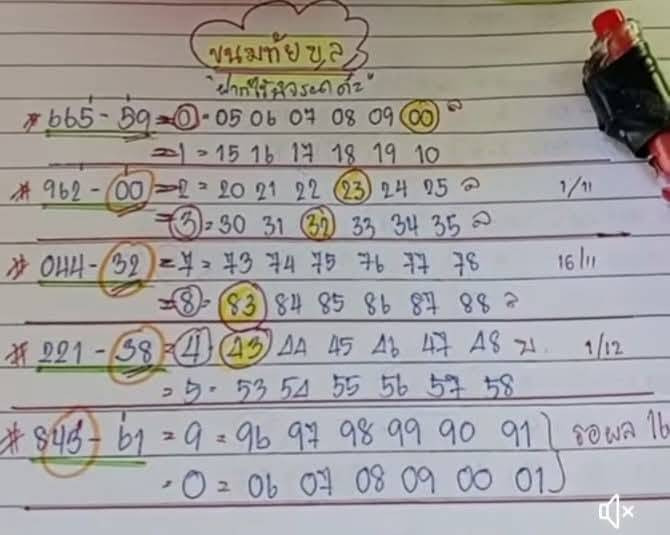 ขนมทัยบูล
665-59=0=05 06 07 08 09 00 ล
=1=15 16 17 18 19 10
962-00=2=20 21 22 23 24 25 ล 1/11
=3=30 31 32 33 34 35 ล
044-32=7=73 74 75 76 77 78 16/11
=8=83 84 85 86 87 88 ล
221-38=4 43 44 45 46 47 48 บ. 1/12
=5=53 54 55 56 57 58
843-61=9=96 97 98 99 90 91 รอผล 16
=0=06 07 08 09 00 01